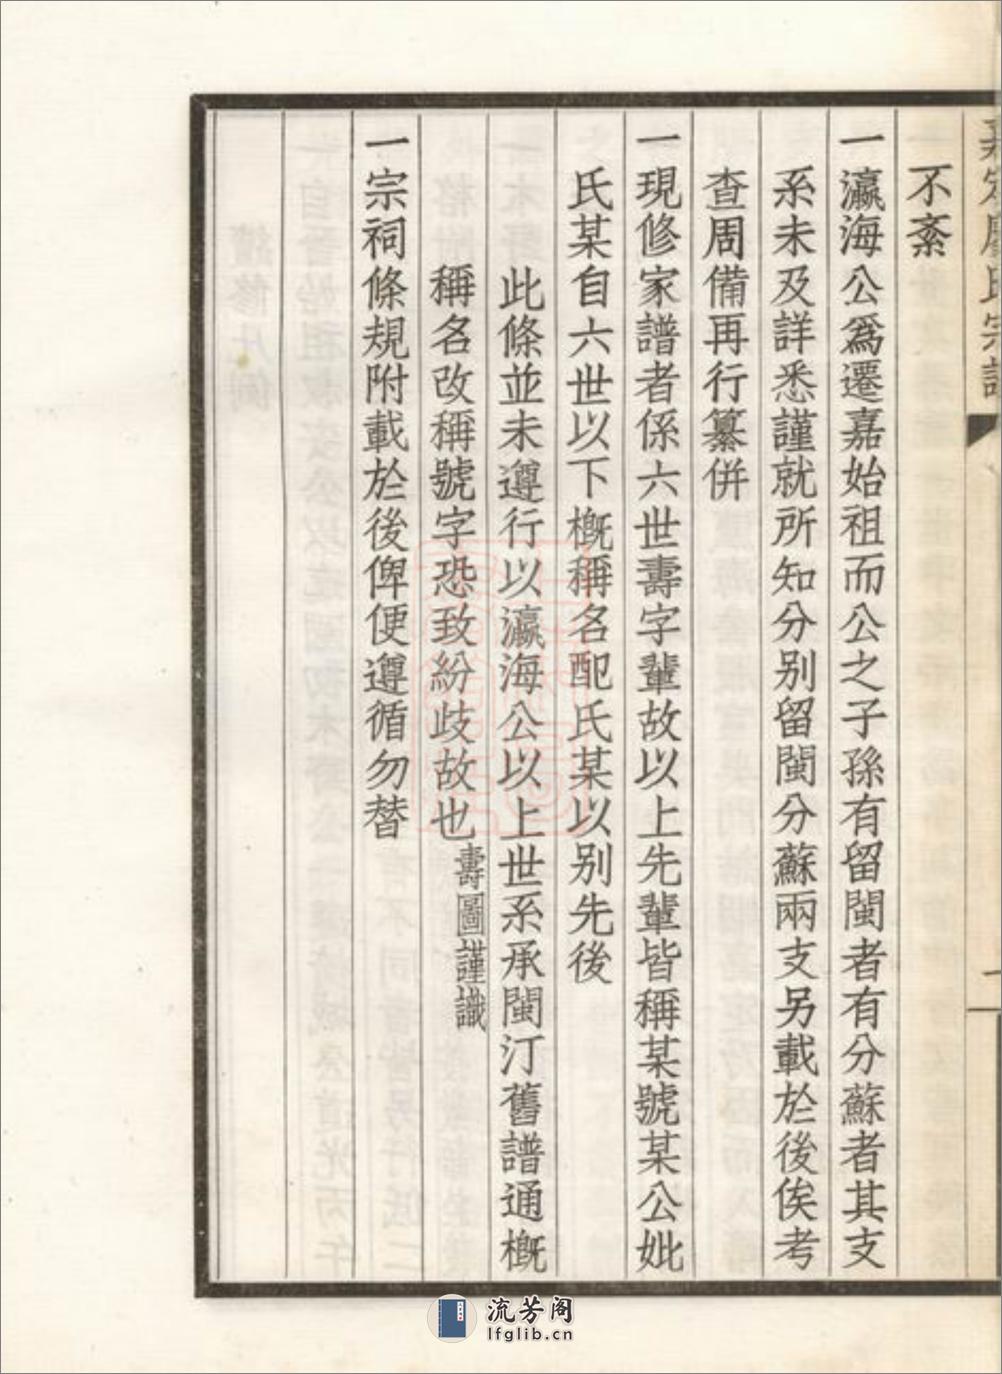 嘉定廖氏宗譜
一
不紊
一瀛海公爲遷嘉始祖而公之子孫有留閩者有分蘇者其支
系未及詳悉謹就所知分别留閩分蘇兩支另載於後俟考
查周備再行纂併
一現修家譜者係六世壽字輩故以上先輩皆稱某號某公妣
氏某自六世以下概稱名配氏某以别先後
此條並未遵行以瀛海公以上世系承閩汀舊譜通概
稱名改稱號字恐致紛歧故也壽圖謹識
一宗祠條規附載於後俾便遵循勿替
流芳阁
lfglib.cn